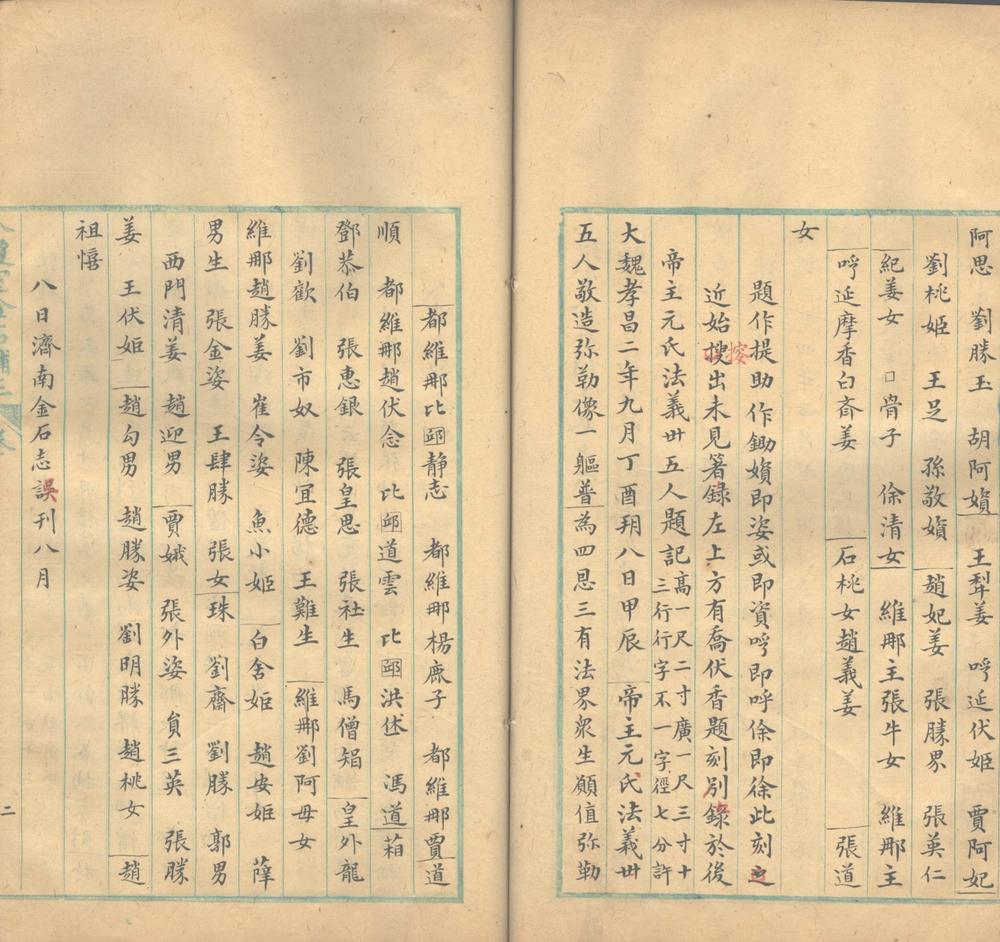 阿思 劉勝玉 胡阿媍 王犁姜 呼延伏姬 賈阿妃
劉桃姬 王足 孫敬媍 趙妃姜 張勝界 張英仁
紀姜女 □骨子 徐清女 維那主張牛女 維那主
呼延摩香白斉姜 石桃女趙義姜 張道
女
題作提助作鋤媍即姿或即資呼即呼徐即徐此刻
近始搜按出未見著錄左上方有喬伏香題刻別錄於後
帝主元氏法義卅五人題記高一尺二寸廣一尺三寸十
三行行字不一字徑七分許
大魏孝昌二年九月丁酉玥八日甲辰 帝主元氏法義卅
五人敬造弥勒像一軀普為四恩三有法界眾生願值弥勒
都維那比邱静志 都維那楊鹿子 都維那賈道
順 都維那趙伏念 比邱道雲 比邱洪述 馮道葙
鄧恭伯 張惠銀 張皇思 張社生 馬僧䂓 皇外龍
劉歡 劉市奴 陳冝德 王難生 維那劉阿母女
維那趙勝姜 崔令姿 魚小姬 白舍姬 趙安姬 薩
男生 張金姿 王肆勝 張女珠 劉齋 劉勝 郭男
西門清姜 趙迎男 賈娥 張外姿 負三英 張勝
姜 王伏姬 趙勾男 趙勝姿 劉明勝 趙桃女 趙
祖憘
八日濟南金石志誤刊八月
二